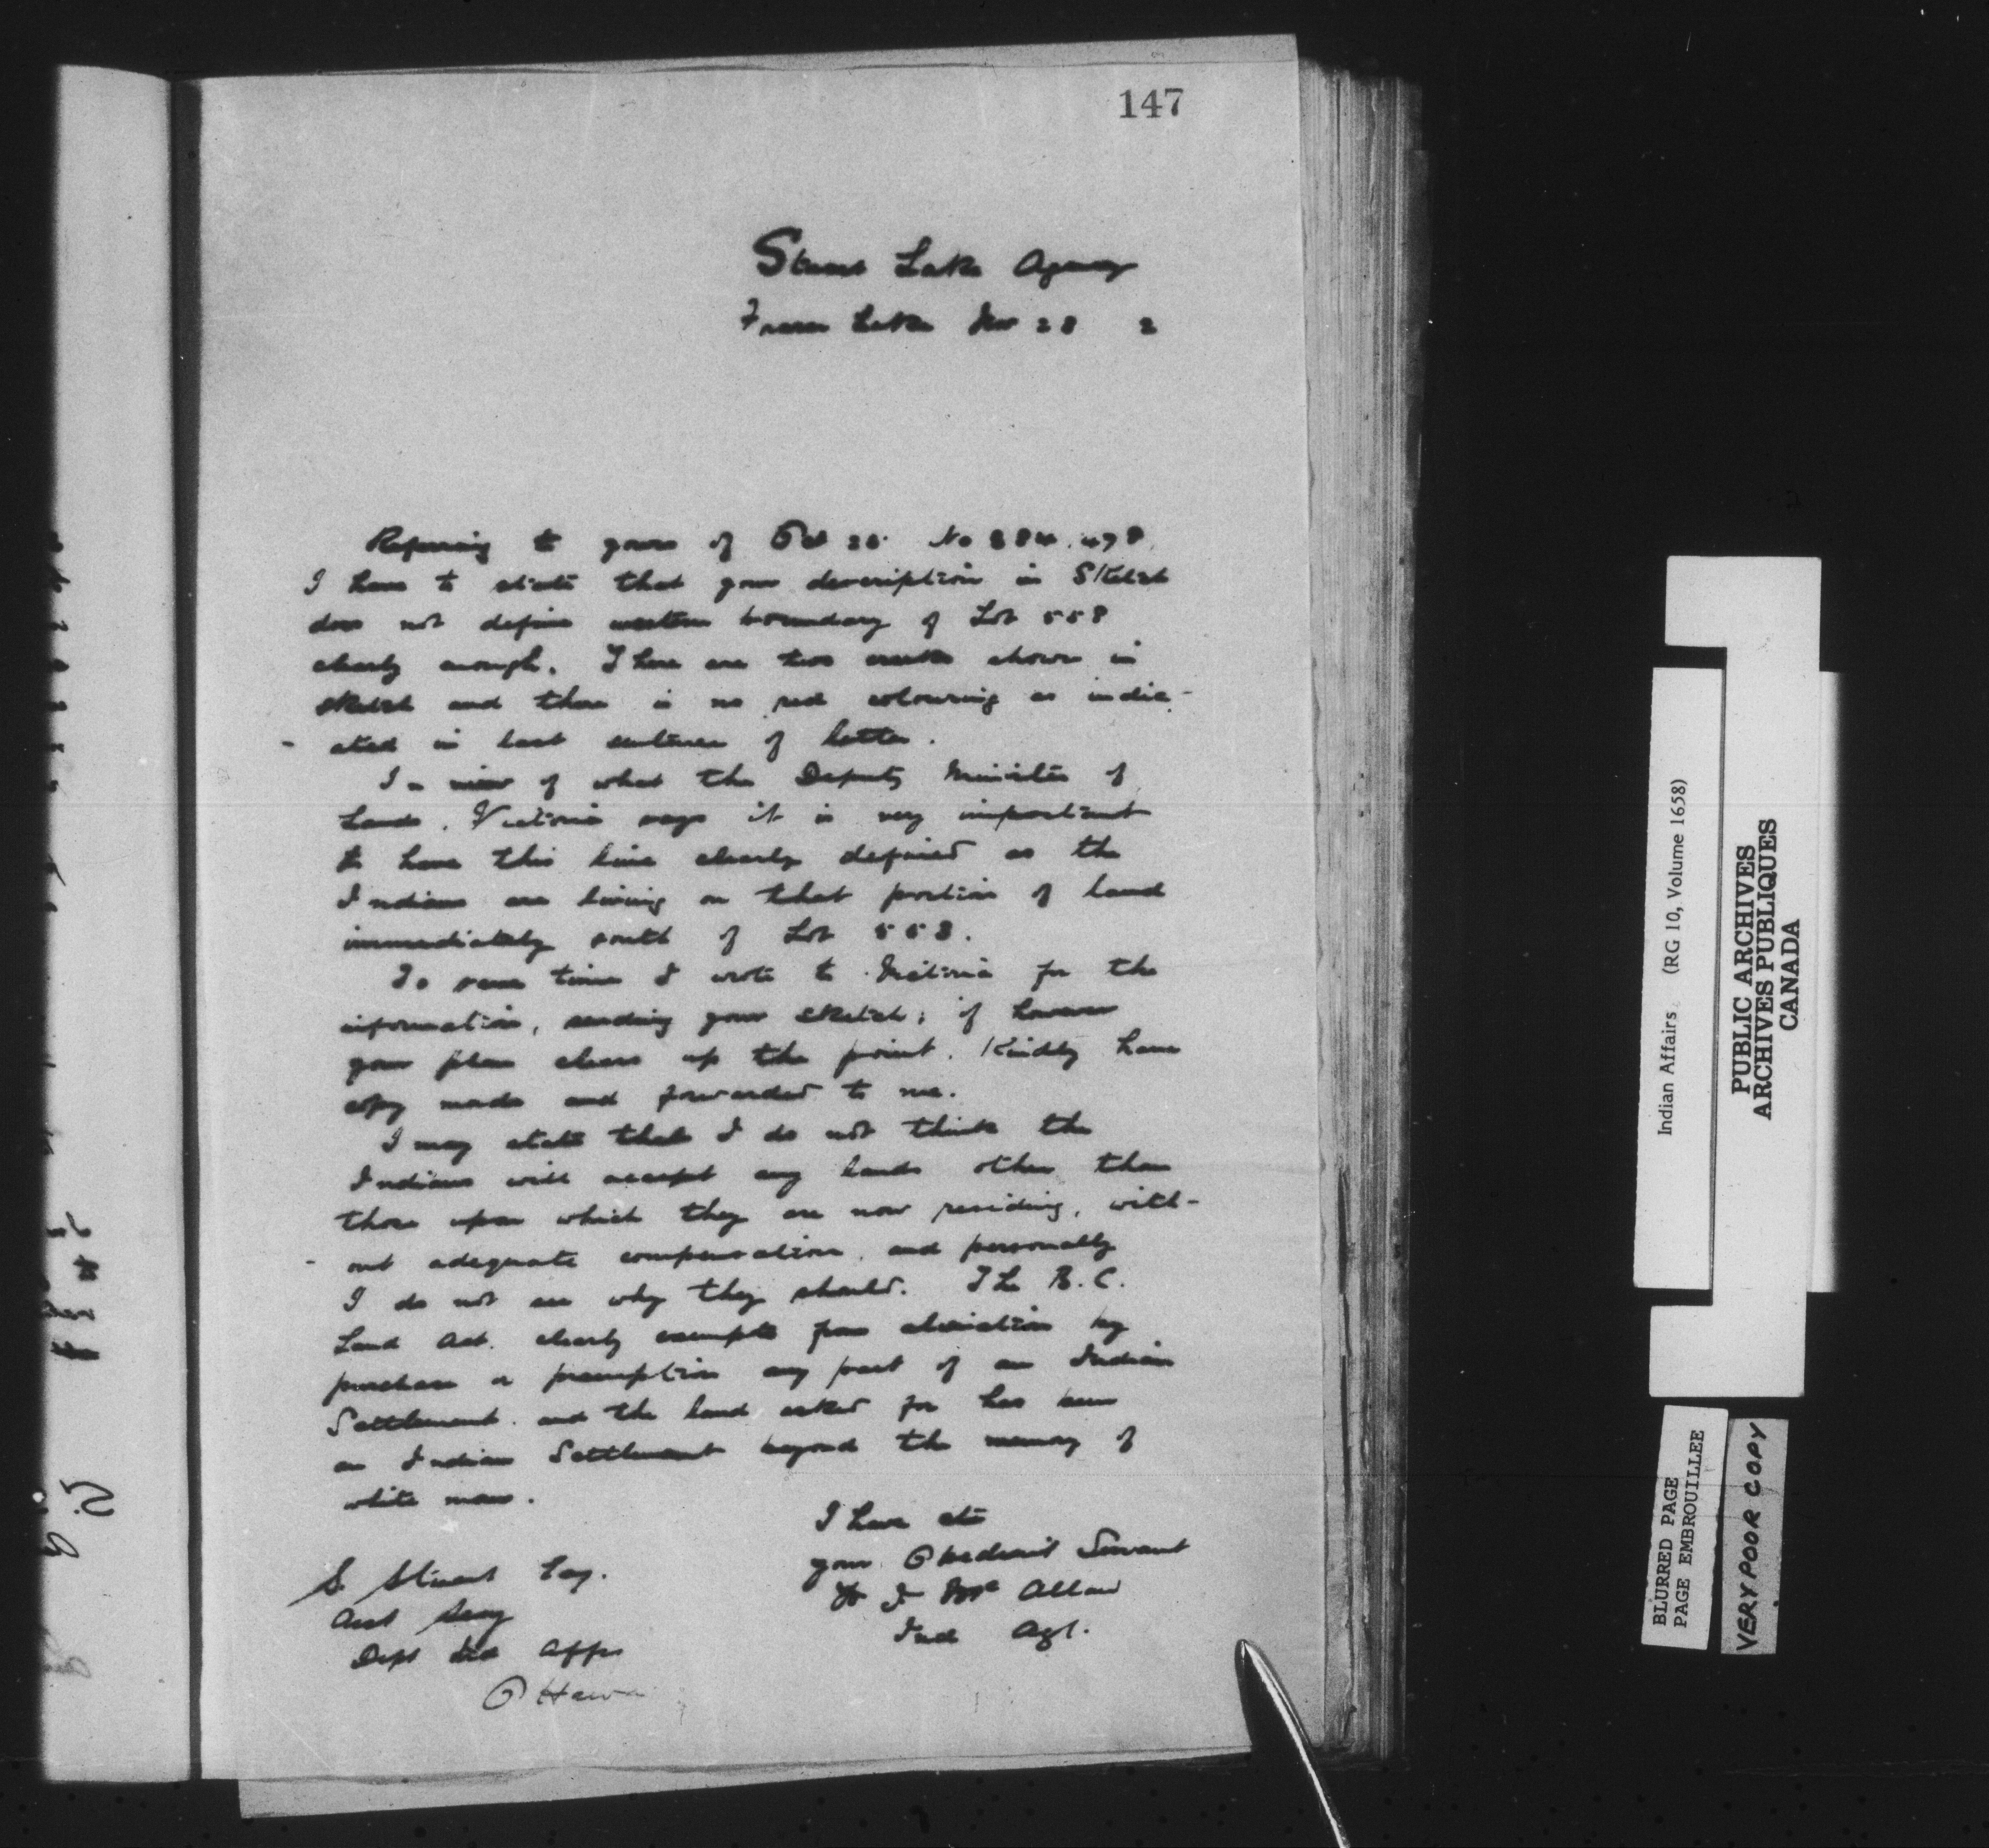 147
Stuart Lake Agency
Fraser Lake Nov 28 2
Referring to yours of Oct 26 No 384.478,
I have to state that your description in Sketch
does not define western boundary of Lot 558
clearly enough. There are two creeks shown in
sketch and there is no red colouring as indic-
- ated in last sentence of letter.
In view of what the Deputy Minister of
Lands, Victoria says it is very important
to have this line clearly defined as the
Indians are living on that portion of land
immediately south of Lot 558.
To save time I wrote to Victoria for the
information, sending your sketch; if however
your plan clears up the point, Kindly have
copy made and forwarded to me.
I may state that I do not think the
Indians will accept any lands other than
those upon which they are now residing, with-
- out adequate compensation, and personally
I do not see why they should. The B.C.
Land Act. clearly exempts from alienation by
purchase or preemption any part of an Indian
Settlement. and the land asked for has been
an Indian Settlement beyond the memory of
white man.
I have etc
your Obedient Servant
W J McAllan
Ind Agt.
S. Stewart Esq.
Asst Secy
Dept Ind Affrs
Ottawa
Indian Affairs (RG 10, Volume 1658)
PUBLIC ARCHIVES
ARCHIVES PUBLIQUES
CANADA
BLURRED PAGE
PAGE EMBROUILLEE
VERY POOR COPY